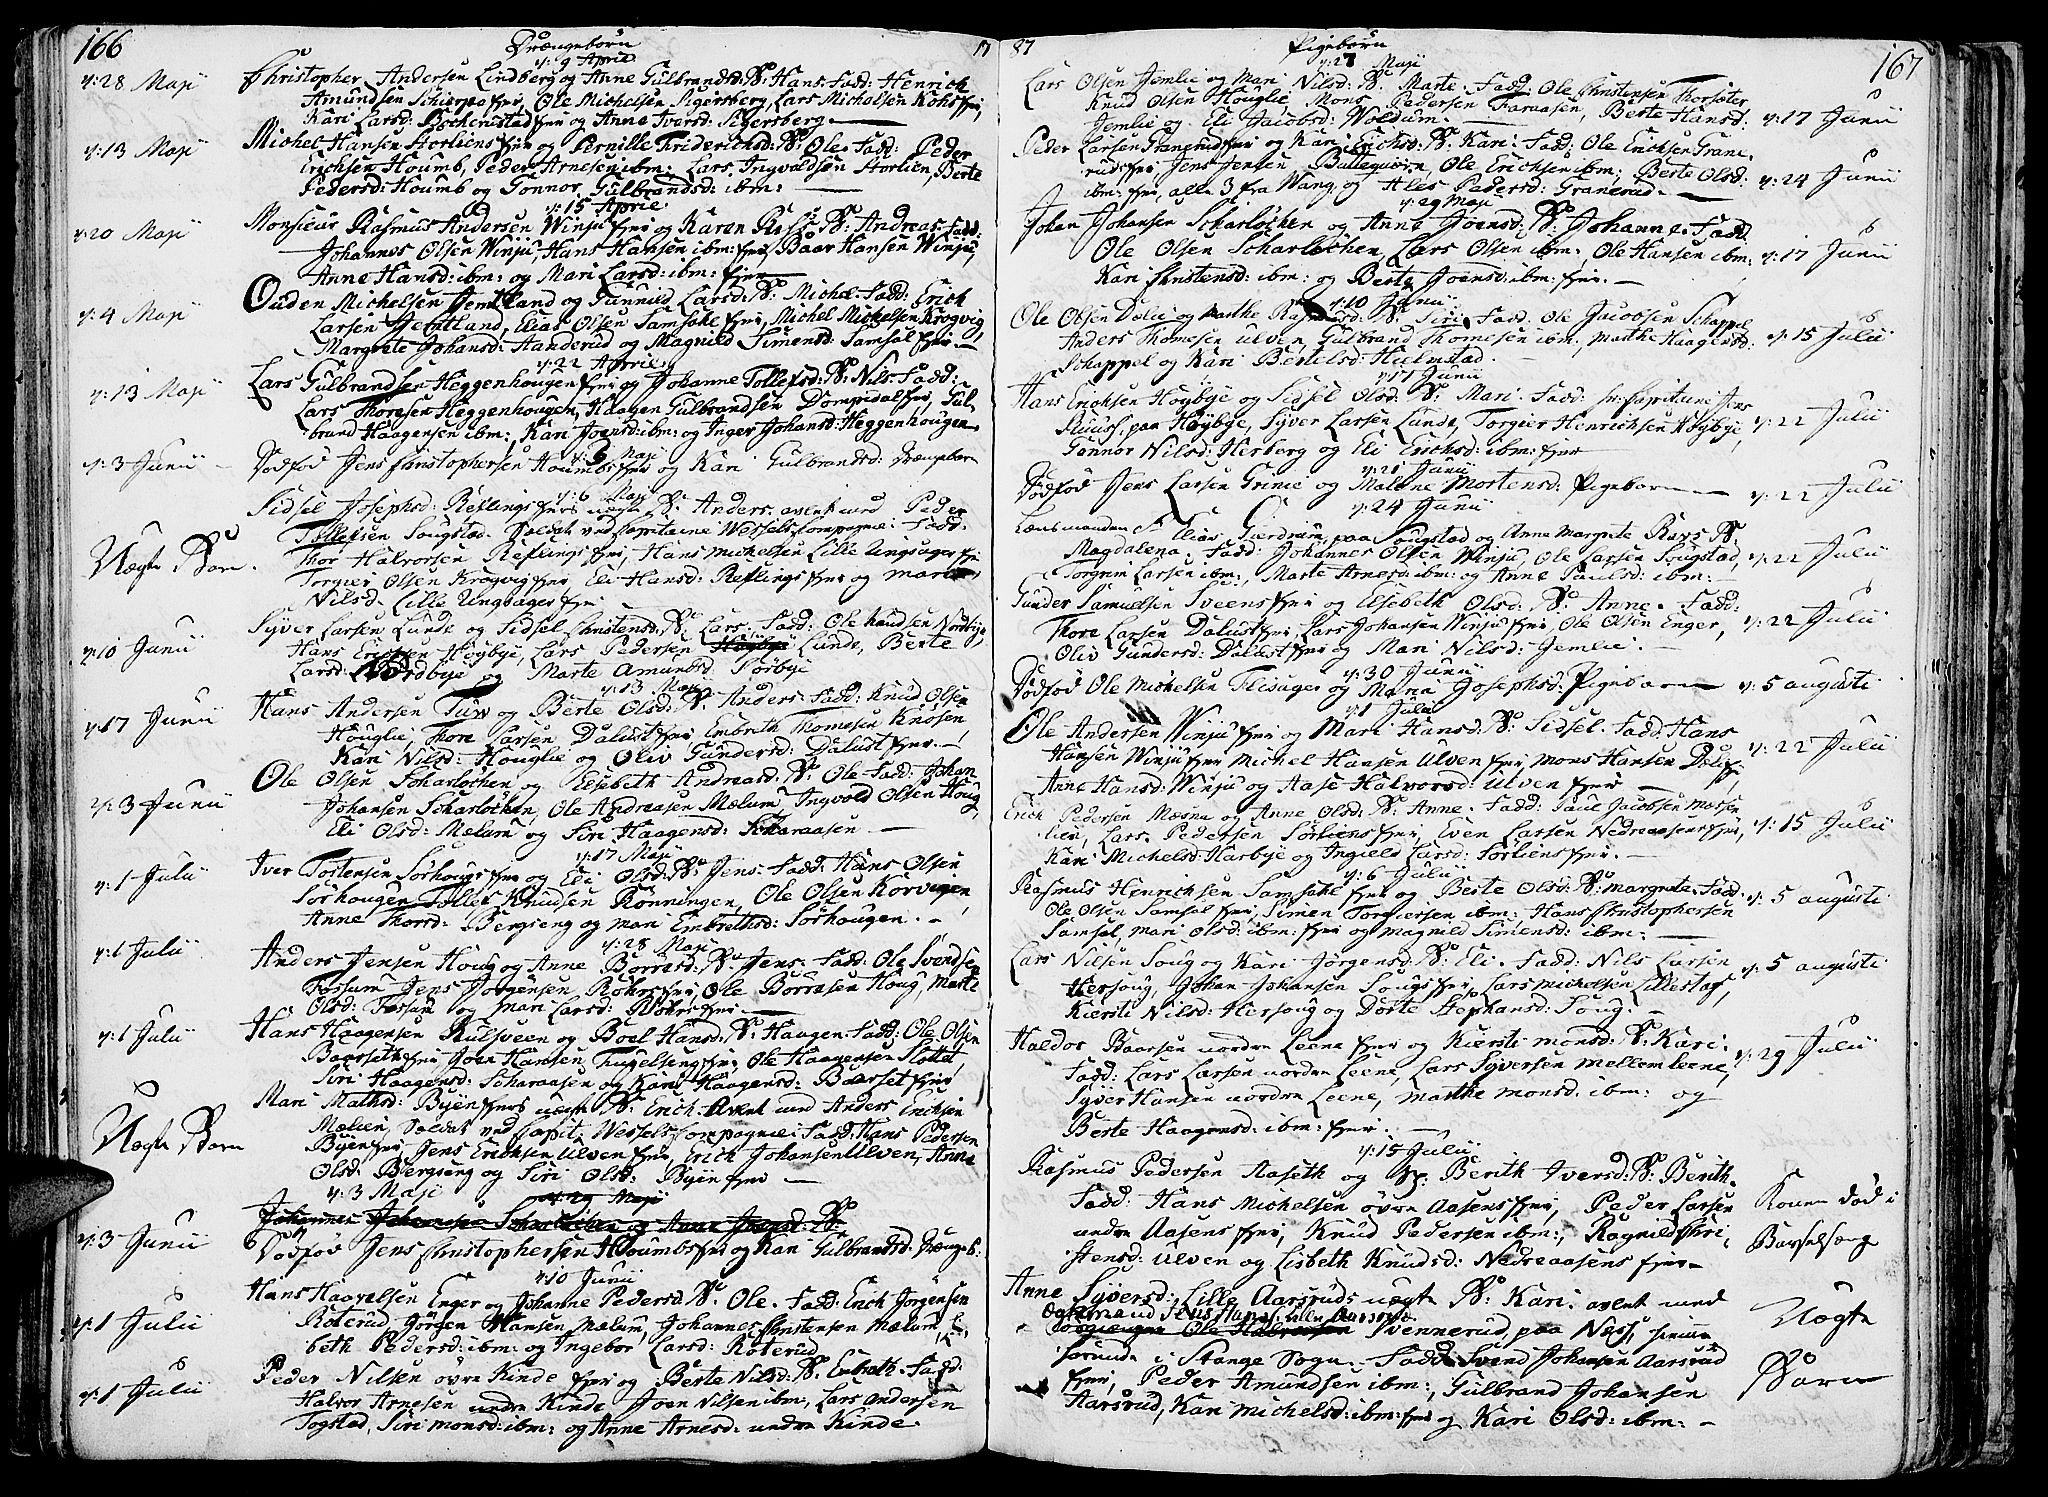 166
Drængebørn
17
d: 9 April
d: 28 Maji
Christopher Andersen Lindberg og Anne Gulbrandsd: B: Hans. Fadd: Henrich
Amundsen Schierpe Ejer, Ole Michelsen Sigersberg, Lars Michelsen
Kari Larsd: og Anne Iversd: Sigersberg
d: 13 Maji
Michel Hansen Storliens Ejer og Pernille Friderichsd: B: Ole. Fadd: Peder
Erichsen Houmb, Peder Arnesen ibm: Lars Ingvaldsen Storlien, Berte
Pedersd: Houmb og Gonnor Gulbrandsd: ibm:
d: 15 April
d: 20 Maji
Monsieur Rasmus Andersen Winju Ejer og Karen B: Andreas. Fadd:
Johannes Olsen Winju, Hans Hansen ibm: Ejer, Baar Hansen Winju,
Anne Hansd: ibm: og Mari Larsd: ibm: Ejer
d: 4 Maji
Ouden Michelsen Jemtland og Gunnild Larsd: B: Michel. Fadd: Erich
Larsen Jemtland, Elias Olsen Samsahl Ejer, Michel Michelsen Krogvig,
Margrete Johansd: Handerud og Magnild Simensd: Samsal Ejer.
d: 22 April:
d: 13 Maji
Lars Gulbrandsen Heggenhougen Ejer og Johanne Tollefsd: B: Nils. Fadd:
Lars Thoresen Heggenhougen, Haagen Gulbrandsen Dompidal Ejer, Gul-
brand Haagensen ibm:, Kari Joensd: ibm: og Inger Johansd: Heggenhougen
d: 3 Maji
d: 3 Junii
Dødfød Jens Christophersen Houmbs Ejer og Kari Gulbrandsd: Drængebarn
d: 6 Maji
Sidsel Josephsd: Reflings Ejers uægte B: Anders. avlet med Peder
Tollefsen Sougstad. Soldat ved Capitaine Wessels Compagnie: Fadd:
Thor Halvorsen Reflings Ejer, Hans Michelsen Lille Ungsager Ej:
Uægte Barn.
Torgier Olsen Krogvig Ejer, Eli Hansd: Reflings Ejer og Mari
Nilsd. Lille Ungsager Ejer
d: 10 Junii
Syver Larsen Lunde og Sidsel Christensd: B: Lars. Fadd: Ole Knudsen Nordbye,
Hans Erichsen Høybye, Lars Pedersen Høybye Lunde, Berte
Larsd: Nordbye og Marte Amundsd Sørbye
d: 13 Maji
d: 17 Junii
Hans Andersen Tuv og Berte Olsd: B: Anders. Fadd: Knud Olsen
Houglie, Thore Larsen Dalust Ejer Embreth Thomesen Knosen,
Kari Nilsd: Houglie og Oliv Gundersd: Dalust Ejer.
d: 3 Junii
Ole Olsen Scharlochen og Elsebeth Andreasd: B: Ole. Fadd: Johan
Johansen Scharlochen, Ole Andreasen Mælum Ingvold Olsen Houg,
Eli Olsd: Mælum og Siri Haagensd: Scharaasen
d: 17 Maji
d: 1 Julii
Iver Tostensen Sørhougs Ejer og Eli Olsd: B: Jens. Fadd: Hans Olsen
Sørhougen Tollef Knudsen Rønningen, Ole Olsen Korvegen,
Anne Thorsd: Bergseng og Mari Embrethsd: Sørhougen.
d: 28 Maji
d: 1 Julii
Anders Jensen Houg og Anne Børresd: B: Jens. Fadd: Ole Svendsen
Fossum Jens Jørgensen Rohrs Ejer, Ole Børresen Houg, Marte
Olsd: Fossum og Mari Larsd: Rohrs Ejer.
d: 1 Julii
Hans Haagensen Kulsveen og Boel Hansd: B: Haagen. Fadd: Ole Olsen
Baarseth Ejer Joen Hansen Ejer, Ole Haagensen Slottet,
Siri Haagensd: Scharaasen og Kari Haagensd: Baarset Ejer
Uægte Barn
Mari Mathsd: Byen Ejers uægte B: Erich. Avlet med Anders Erichsen
Mælien, Soldat ved Capit: Wessels Compagnie: Fadd: Hans Pedersen
Byen Ejer, Jens Erichsen Ulven Ejer, Erich Johansen Ulven, Anne
Olsd: Bergseng og Siri Olsd: Byen Ejer
d: 3 Maji d: 29 Maji
Johannes Johannesen Scharlochen og Anne Joensd: B:
d: 3 Junii
Dødfød Jens Christophersen Houmbs Ejer og Kari Gulbrandsd: Drængeb:
d: 10 Junii
Hans Haavelsen Enger og Johanne Pedersd: B: Ole. Fadd: Erich Jørgensen
d: 1 Julii
Roterud, Jørgen Hansen Mælum, Johannes Christensen Mælum, Li-
beth Pedersd: ibm: og Ingebor Larsd: Roterud
d: 1 Julii
Peder Nilsen øvre Kinde Ejer og Berte Nilsd: B: Embreth. Fadd:
Halvor Arnesen nedre Kinde Joen Nilsen ibm:, Lars Andersen
Togstad, Siri Monsd: ibm: og Anne Arnesd: nedre Kinde.
87
Pigebørn
167
d: 27 Maji
Lars Olsen Jemlie og Mari Nilsd: B: Marte. Fadd: Ole Christensen Thorsæter,
Knud Olsen Houglie, Mons Pedersen Faraasen, Berte Hansd:
Jemlie og Eli Jacobsd: Woldum.
d: 17 Junii
Peder Larsen Granerud Ejer og Kari Erichsd: B: Kari. Fadd: Ole Erichsen Grane-
rud Ejer, Jens Jensen Ole Erichsen ibm:, Berte Olsd:
ibm: Ejer, alle 3 fra Wang, og Ales Pedersd: Granerud.
d: 24 Junii
d: 29 Maji
Johan Johansen Scharlochen og Anne Joensd: B: Johanne. Fadd.
Ole Olsen Scharlochen, Lars Olsen ibm., Ole Hansen ibm:
Kari Christensd: ibm: og Berte Joensd: ibm: Ejer.
d: 17 Junii
d: 10 Junii
Ole Olsen Dølie og Marthe Rasmusd: B: Siri. Fadd. Ole Jacobsen Schappel
Anders Thomesen Ulven, Gulbrand Thomesen ibm:, Marthe Haagensd:
Schappel og Kari Bertelsd: Hielmstad.
d: 15 Julii
d: 17 Junii
Hans Erichsen Høybye og Sidsel Olsd: B: Mari. Fadd: Hr: Capitaine Jens
paa Høybye, Syver Larsen Lunde, Torgier Henrichsen Høybye,
Gonnor Nilsd: Herberg og Eli Erichsd: ibm: Ejer
d: 22 Julii
d: 21 Junii
Dødfød Jens Larsen Grinie og Malene Mortensd: Pigebarn
d: 22 Julii
d: 24 Junii
Lænsmanden Sr. Elias Gierdrum paa Sougstad og Anne Margrete B:
Magdalena. Fadd: Johannes Olsen Winju, Ole Larsen Sougstad,
Torgrim Larsen ibm:, Marte Arnesd: ibm: og Anne Paulsd: ibm:
d: 22 Julii
Gunder Samuelsen Sveens Ejer og Elsebeth Olsd: B: Anne. Fadd:
Thore Larsen Dalust Ejer, Lars Johansen Winju Ejer, Ole Olsen Enger,
Oliv Gundersd: Dalust Ejer og Mari Nilsd: Jemlie.
d: 22 Julii
d: 30 Junii
Dødfød Ole Michelsen Flisager og Maria Josephsd: Pigebarn
d: 5 augusti
d: 1 Julii
Ole Andersen Winju Ejer og Mari Hansd: B: Sidsel. Fadd: Hans
Hansen Winju Ejer Michel Hansen Ulven Ejer, Mons Hansen
Anne Hansd: Winju og Aase Halvorsd: Ulven Ejer
d: 22 Julii
Erich Pedersen Mæsna og Anne Olsd: B: Anne. Fadd: Paul Jacobsen Messen-
lien, Lars Pedersen Sørliens Ejer, Even Larsen Nedreaasens Ejer,
Kari Michelsd: Harbye og Ingield Larsd: Sørliens Ejer.
d: 15 Julii
d: 6 Julii
Rasmus Henrichsen Samsahl Ejer og Berte Olsd: B: Margrete. Fadd:
Ole Olsen Samsal Ejer, Simen Torgiersen ibm: Hans Christophersen
Samsal, Mari Olsd: ibm: Ejer og Magnild Simensd: ibm:
d: 5 augusti
Lars Nilsen Soug og Kari Jørgensd: B: Eli. Fadd: Nils Larsen
Hersoug, Johan Johansen Sougs Ejer, Lars Michelsen Lillestas,
Kiersti Nilsd: Hersoug og Dorte Stephansd: Soug.
d: 5 augusti
Haldos Baarsen nordre Leene Ejer og Kiersti Monsd: B: Kari.
Fadd: Lars Larsen nordre Leene, Lars Syversen mellem Leene,
Syver Hansen nordre Leene, Marthe Monsd: ibm: og
Berte Haagensd: ibm: Ejer.
d: 29 Julii
d: 15 Julii
Rasmus Pedersen Aaseth og Berith Iversd: B: Berith.
Fadd: Hans Michelsen øvre Aasens Ejer, Peder Larsen
nedre Aasens Ejer, Knud Pedersen ibm:, Ragnild Chri-
stensd: Ulven og Lisbeth Knudsd: Nedreaasens Ejer
Konen død i
Barselseng
Anne Syversd: Lille Aarsruds uægte B: Kari. avlet med
Ole Halvorsen Svennerud paa Næss,
i Stange Sogn. Fadd Svend Johansen Aarsrud
Ejer, Peder Amundsen ibm:, Gulbrand Johansen
Aarsrud, Kari Michelsd: ibm: Ejer og Kari Olsd: ibm:
Uægte
Barn